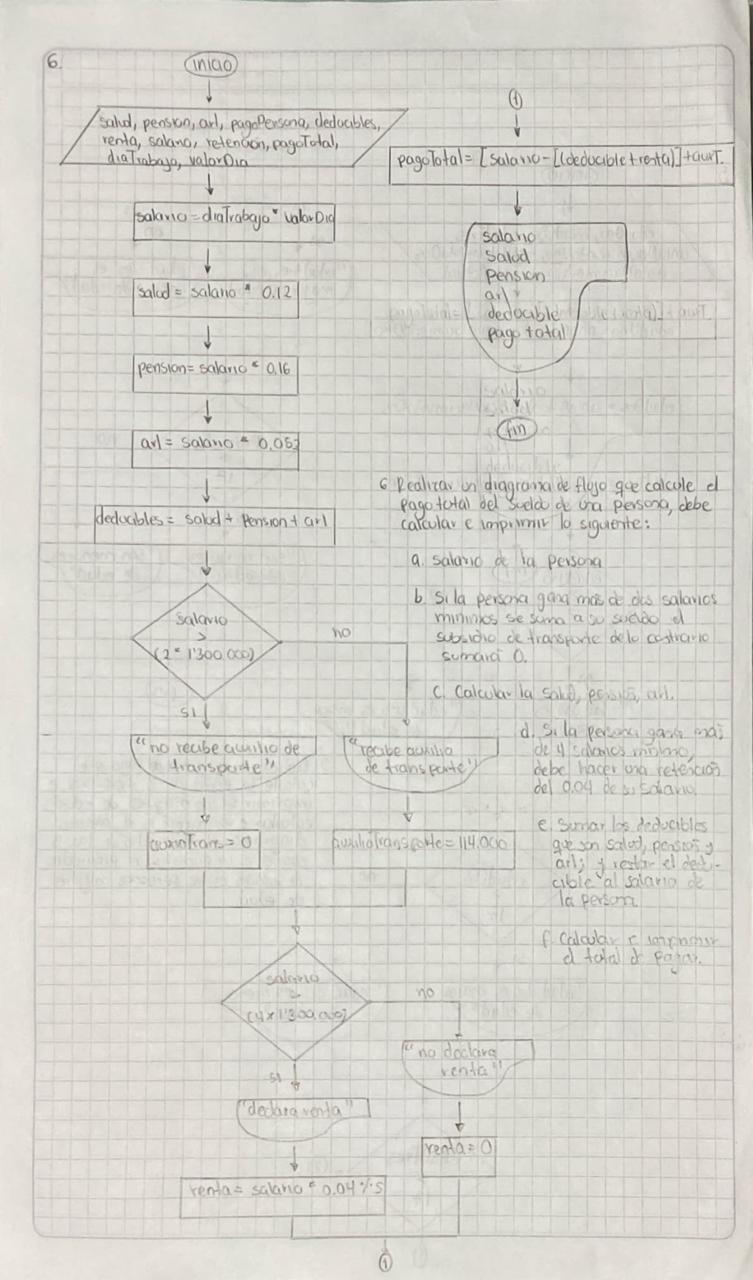 6.
inicio
salud, pension, arl, pagoPersona, deducibles,
renta, salario, retencion, pagoTotal,
diaTrabajo, valorDia
salario = diaTrabajo * valorDia
salud = salario * 0.12
pension = salario * 0.16
arl = salario * 0.052
deducibles = salud + pension + arl
salario
>
(2 * 1'300.000)
no
si
"no recibe auxilio de
transporte"
"recibe auxilio
de transporte"
auxilioTrans = 0
auxilioTransporte = 114.000
salario
>
(4 * 1'300.000)
no
si
"no declara
renta"
"declara renta"
renta = 0
renta = salario * 0.04%
1
1
pagoTotal = [salario - [(deducible + renta)] + auxT.
salario
salud
pension
arl
deducible
pago total
fin
6 Realizar un diagrama de flujo que calcule el
pago total del sueldo de una persona, debe
calcular e imprimir lo siguiente:
a. salario de la persona
b. Si la persona gana más de dos salarios
minimios se suma a su sueldo el
subsidio de transporte de lo contrario
sumará 0.
c. Calcular la salud, pensión, arl.
d. Si la persona gana mas
de 4 salarios minimo,
debe hacer una retención
del 0.04 de su salario.
e. Sumar los deducibles
que son salud, pensión y
arl; y restar el dedu-
cible al salario de
la person.
f. Calcular e imprimir
el total a pagar.